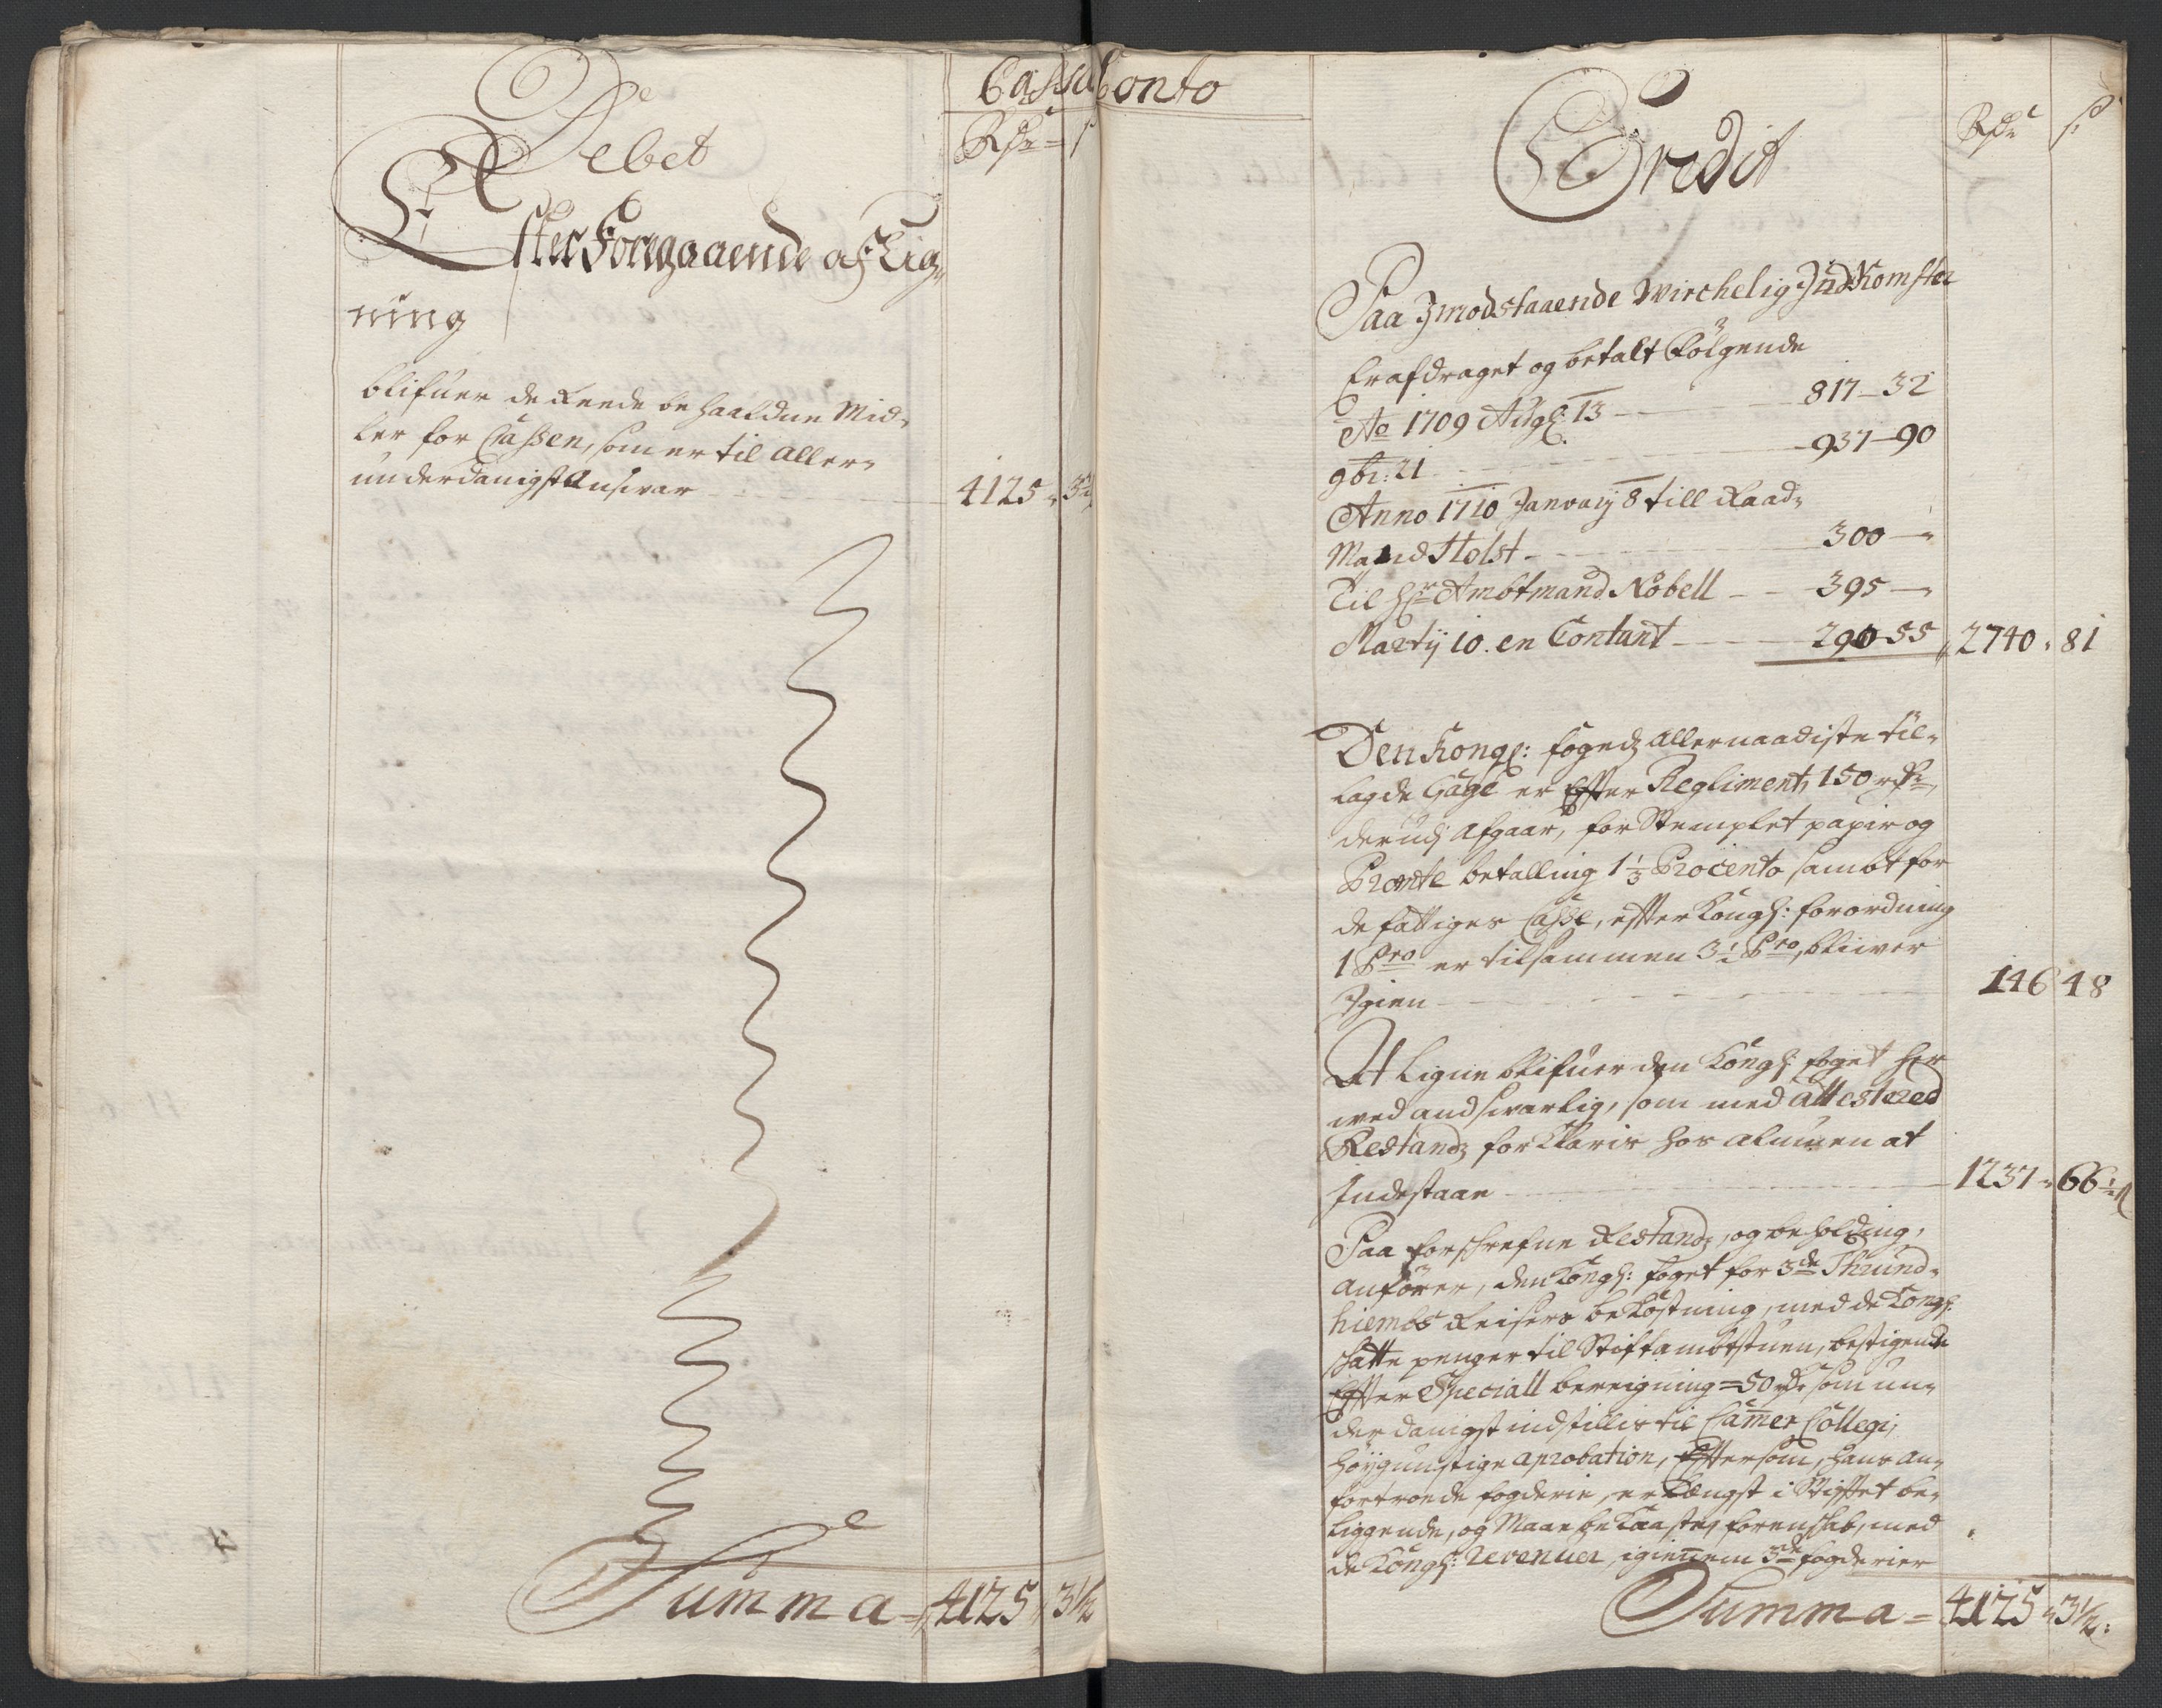 Cassa Conto
Debet
Rdr ß
Efter Foregaaende af Lig-
ning
blifuer de Reede behaaldne Mid-
ler for Cassen, som er til Aller-
underdanigst Ansvar 4125 3½
Summa = 4125 3½
Credit
Rdr ß
Paa Jmodstaaende Wirchelig Jndkomster
Er afdraget og betalt Følgende
Ao 1709 Augl: 13 817 - 32
9br: 21 937 - 90
Anno 1710 Janvarij 8 till Raad-
Mand Holst 300 -
Til Hr Ambtmand Nobell 395 -
Martij 10. en Contant 290 - 55 2740 81
Den Kongl: fogedz allernaadiste til-
lagde Gage er Efter Regliment, 150 rdr,
derudj afgaar, for Stemplet papir og
betalling 1⅓ Procento sambt for
de fattiges Casse, efter Kongl: forordning
1 Pro er tilsammen Pro, bliiver
Jgien 146 48
At Ligne blifuer den Kongl: foget her
wed andsvarlig, som med attestered
Restandz forklaris hos almuen at
Jndestaae 1237 66½
Paa forschrefne Restandz, og beholding,
anfører, den Kongl: foget for 3de Thrund-
hiembs Reisers bekostning, med de Kongl:
schatte penger til Stiftambtstuen, bestigende
Efter Speciall beregning = 50 rdr som un-
derdanigst indstillis til Camer Collegi,
høygunstige aprobation, Eftersom, hans an-
fortroede fogderie, er Længst i Stiftet be-
liggende, og Maae bekaaste, forenschab, med
de Kongl: revenuer, igiennem 3de fogderier
Summa = 4125 3½: